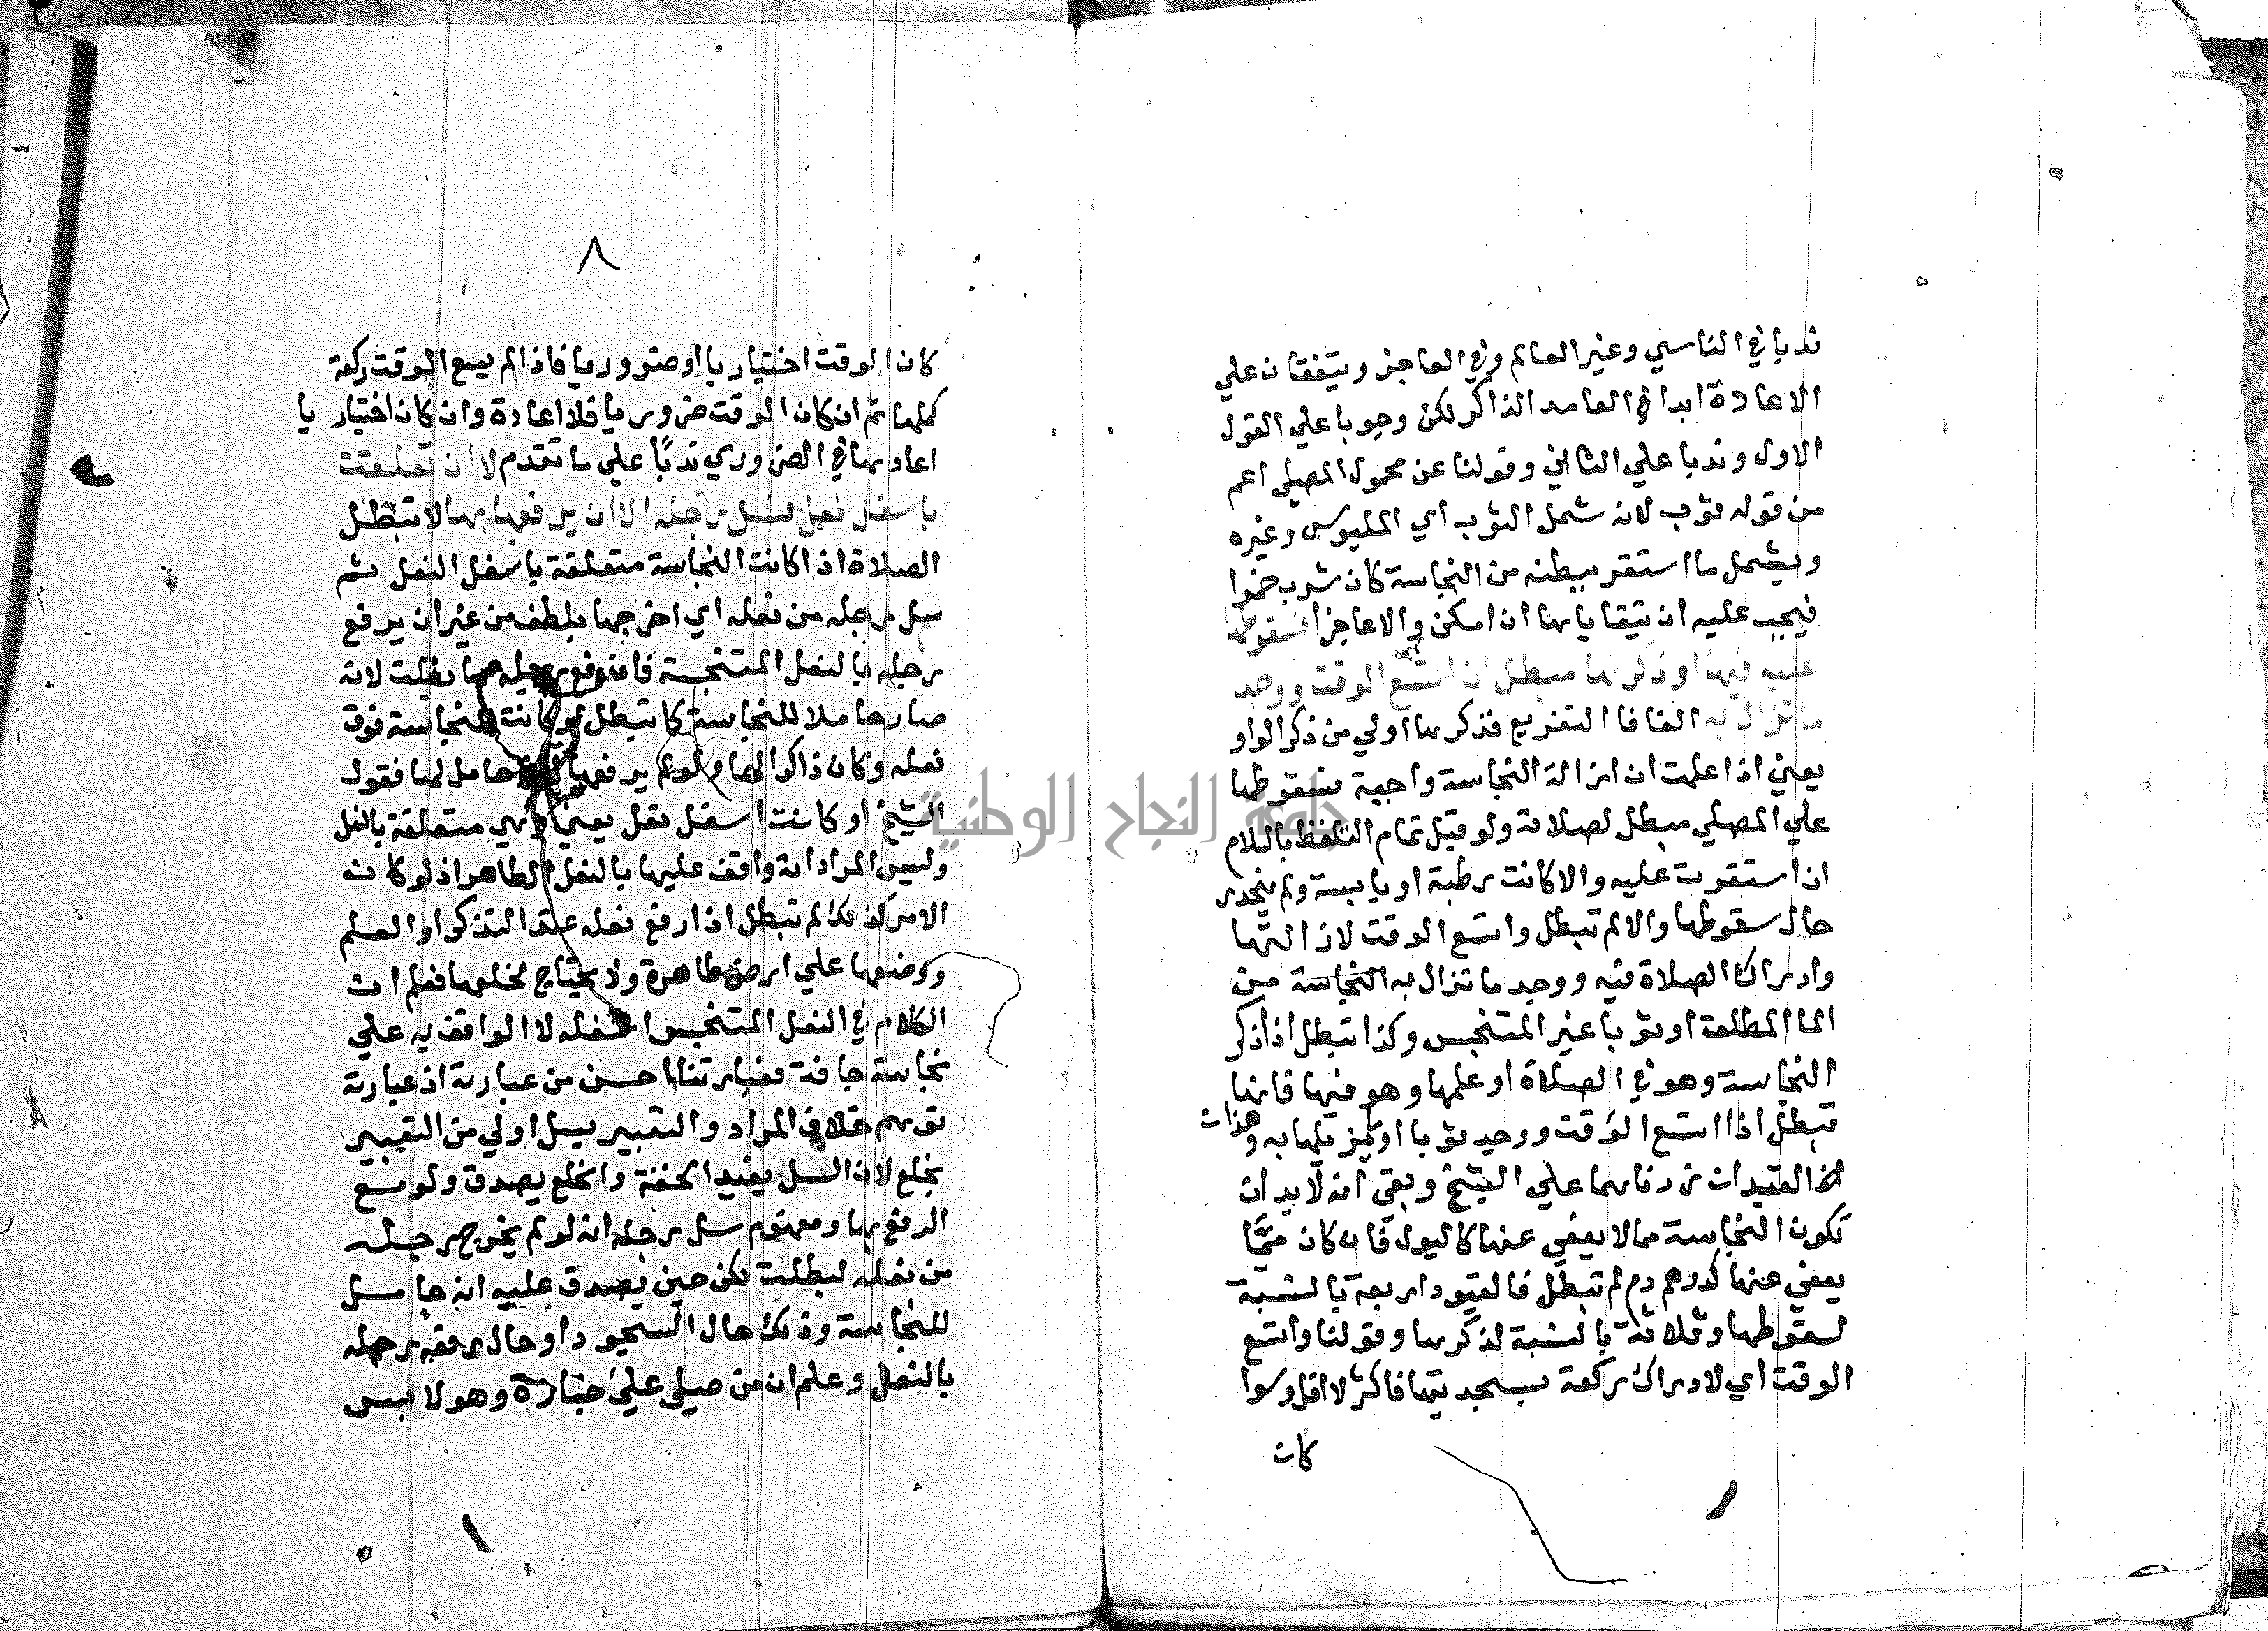 ندبا في الناسي وغير العالم وفي العاجز ويتفقان علي
الاعادة ابدا في العامد الذاكر لكن وجوبا علي القول
الاول وندبا علي الثاني وقولنا عن محمول المصلي اعم
من قوله ثوب لانه شمل الثوب اي الملبوس وغيره
ويشمل ما استقر ببطنه من النجاسة كان شرب خمرا
فيجب عليه ان يتقاياها ان امكن والا عاجزا سقوطها
عليه فيها او ذكرها مبطل ان اتسع الوقت ووجد
ما تزال به الفا فا التفريع فذكرها اولي من ذكر الواو
يعني اذا علمت ان ازالة النجاسة واجبة فسقوطها
علي المصلي مبطل لصلاته ولو قبل تمام التلفظ بالسلام
ان استقرت عليه والا كانت رطبة او يابسة ولم ينحدر
حال سقوطها والا لم تبطل واتسع الوقت لازالتها
وادراك الصلاة فيه ووجد ما تزال به النجاسة من
الما المطلق او ثوبا غير المتنجس وكذا تبطل اذا ذكر
النجاسة وهو في الصلاة او علمها وهو فيها فانها
تبطل اذا اتسع الوقت ووجد ثوبا او يزيلها به وهذان
القيدان زدناهما علي الشيخ وبقي انه لا بد ان
تكون النجاسة مما لا يعفي عنها كالبول فان كان مما
يعفي عنها كدرهم دم لم تبطل فالقيود اربعة بالنسبة
لسقوطها وثلاثة بالنسبة لذكرها وقولنا واتسع
الوقت اي لادراك ركعة بسجدتيها فاكثر لا اقل وسوا
كان
٨
كان الوقت اختياريا او ضروريا فاذا لم يسع الوقت ركعة
كملها ثم ان كان الوقت ضروريا فلا اعادة وان كان اختياريا
اعادها في الضروري ندبا علي ما تقدم لا ان تعلقت
باسفل نعل فسل رجله الا ان يرفعها بها لا تبطل
الصلاة اذا كانت النجاسة متعلقة باسفل النعل ثم
سل رجله من نعله اي اخرجها بلطف من غير ان يرفع
رجله بالنعل المتنجسة فان رفع رجله بها بطلت لانه
صار حاملا للنجاسة كما تبطل لو كانت النجاسة فوق
نعله وكان ذاكرا لها ولو لم يرفعها لانه حامل لها فقول
الشيخ او كانت اسفل نعل يعني وهي متعلقة بالنعل
وليس المراد انه واقف عليها بالنعل الطاهر اذ لو كان
الامر كذلك لم تبطل اذا رفع نعله عند التذكر او العلم
ووضعها علي ارض طاهرة ولا يحتاج لخلعها فعلم ان
الكلام في النعل المتنجس اسفله لا الواقف به علي
نجاسة جافة فعبارتنا احسن من عبارته اذ عبارته
توهم خلاف المراد والتعبير بسل اولي من التعبير
بخلع لان السل يفيد الخفة والخلع يصدق ولو مع
الرفع بها ومفهوم سل رجله انه لو لم يخرج رجله
من نعله لبطلت لكن حين يصدق عليه انه حامل
للنجاسة وذلك حال السجود او حال رفعه رجله
بالنعل وعلم ان من صلي علي جنازة وهو لابس